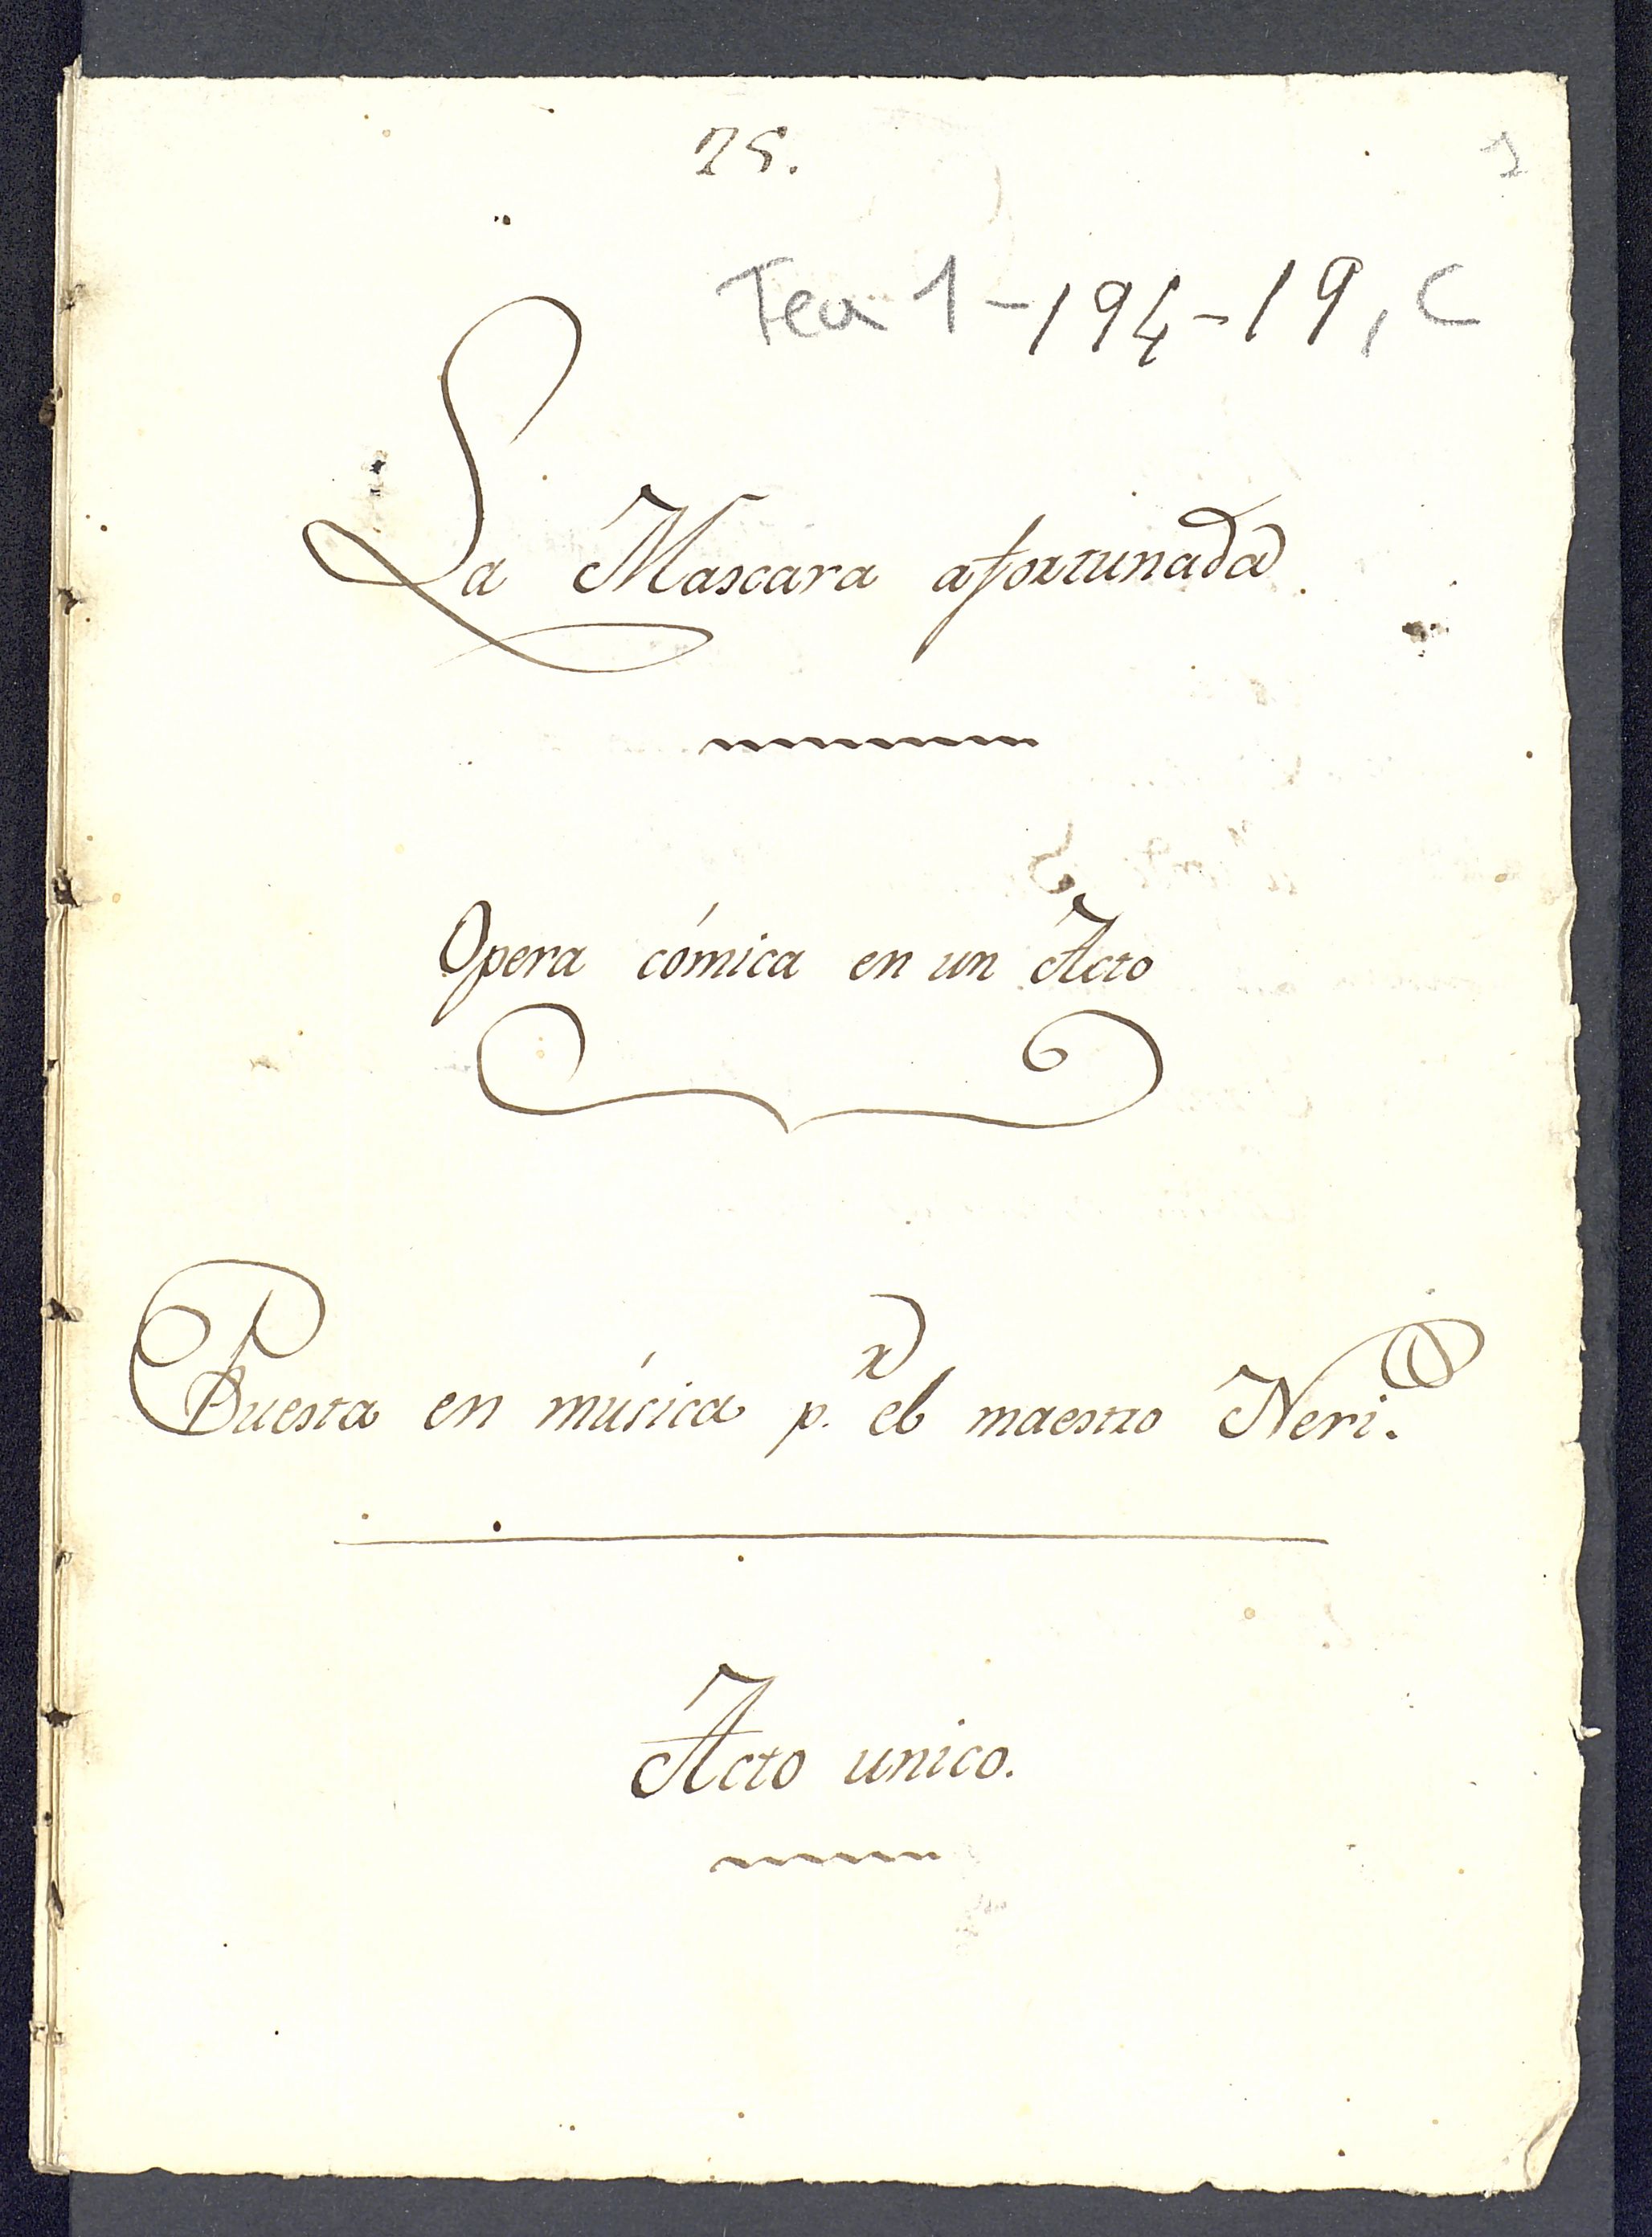 25.
1
Tea 1-194-19, C
La Mascara afortunada.
Opera cómica en un Acto
Puesta en música p.r el maestro Neri.
Acto unico.